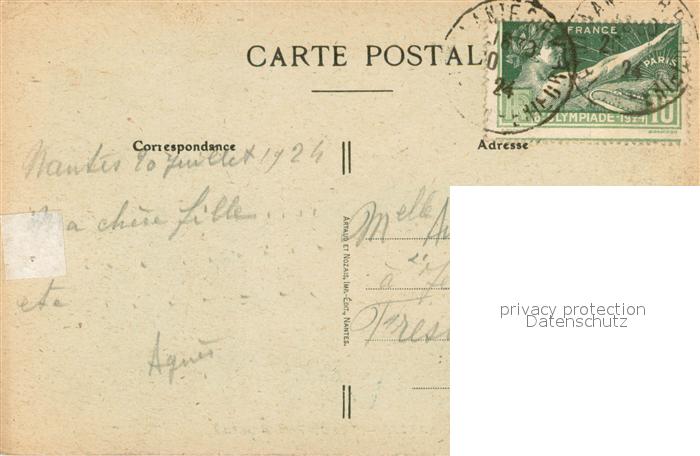 CARTE POSTAL
FRANCE
PARIS
24
24
8E OLYMPIADE-1924
10
Correspondance
Adresse
Nantes 20 Juillet 1924
Ma chère fille . . . .
Melle
à
etc
Agnès
ARTAUD ET NOZAIS, IMP.-ÉDIT., NANTES.
privacy protection
Datenschutz